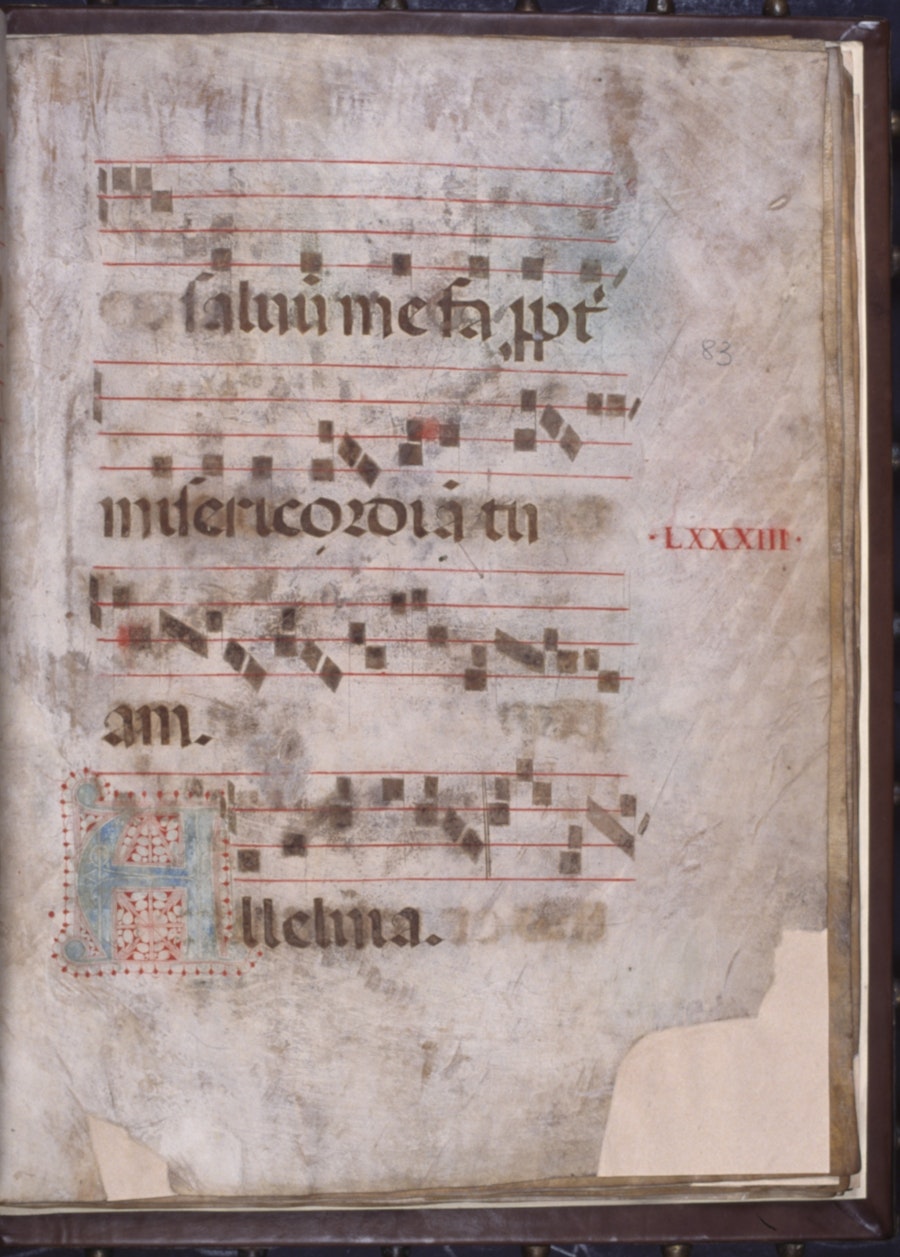 saluū me fa ꝓpt̄
83
misericordiā tu
·LXXXIII·
am.
Alleluia.